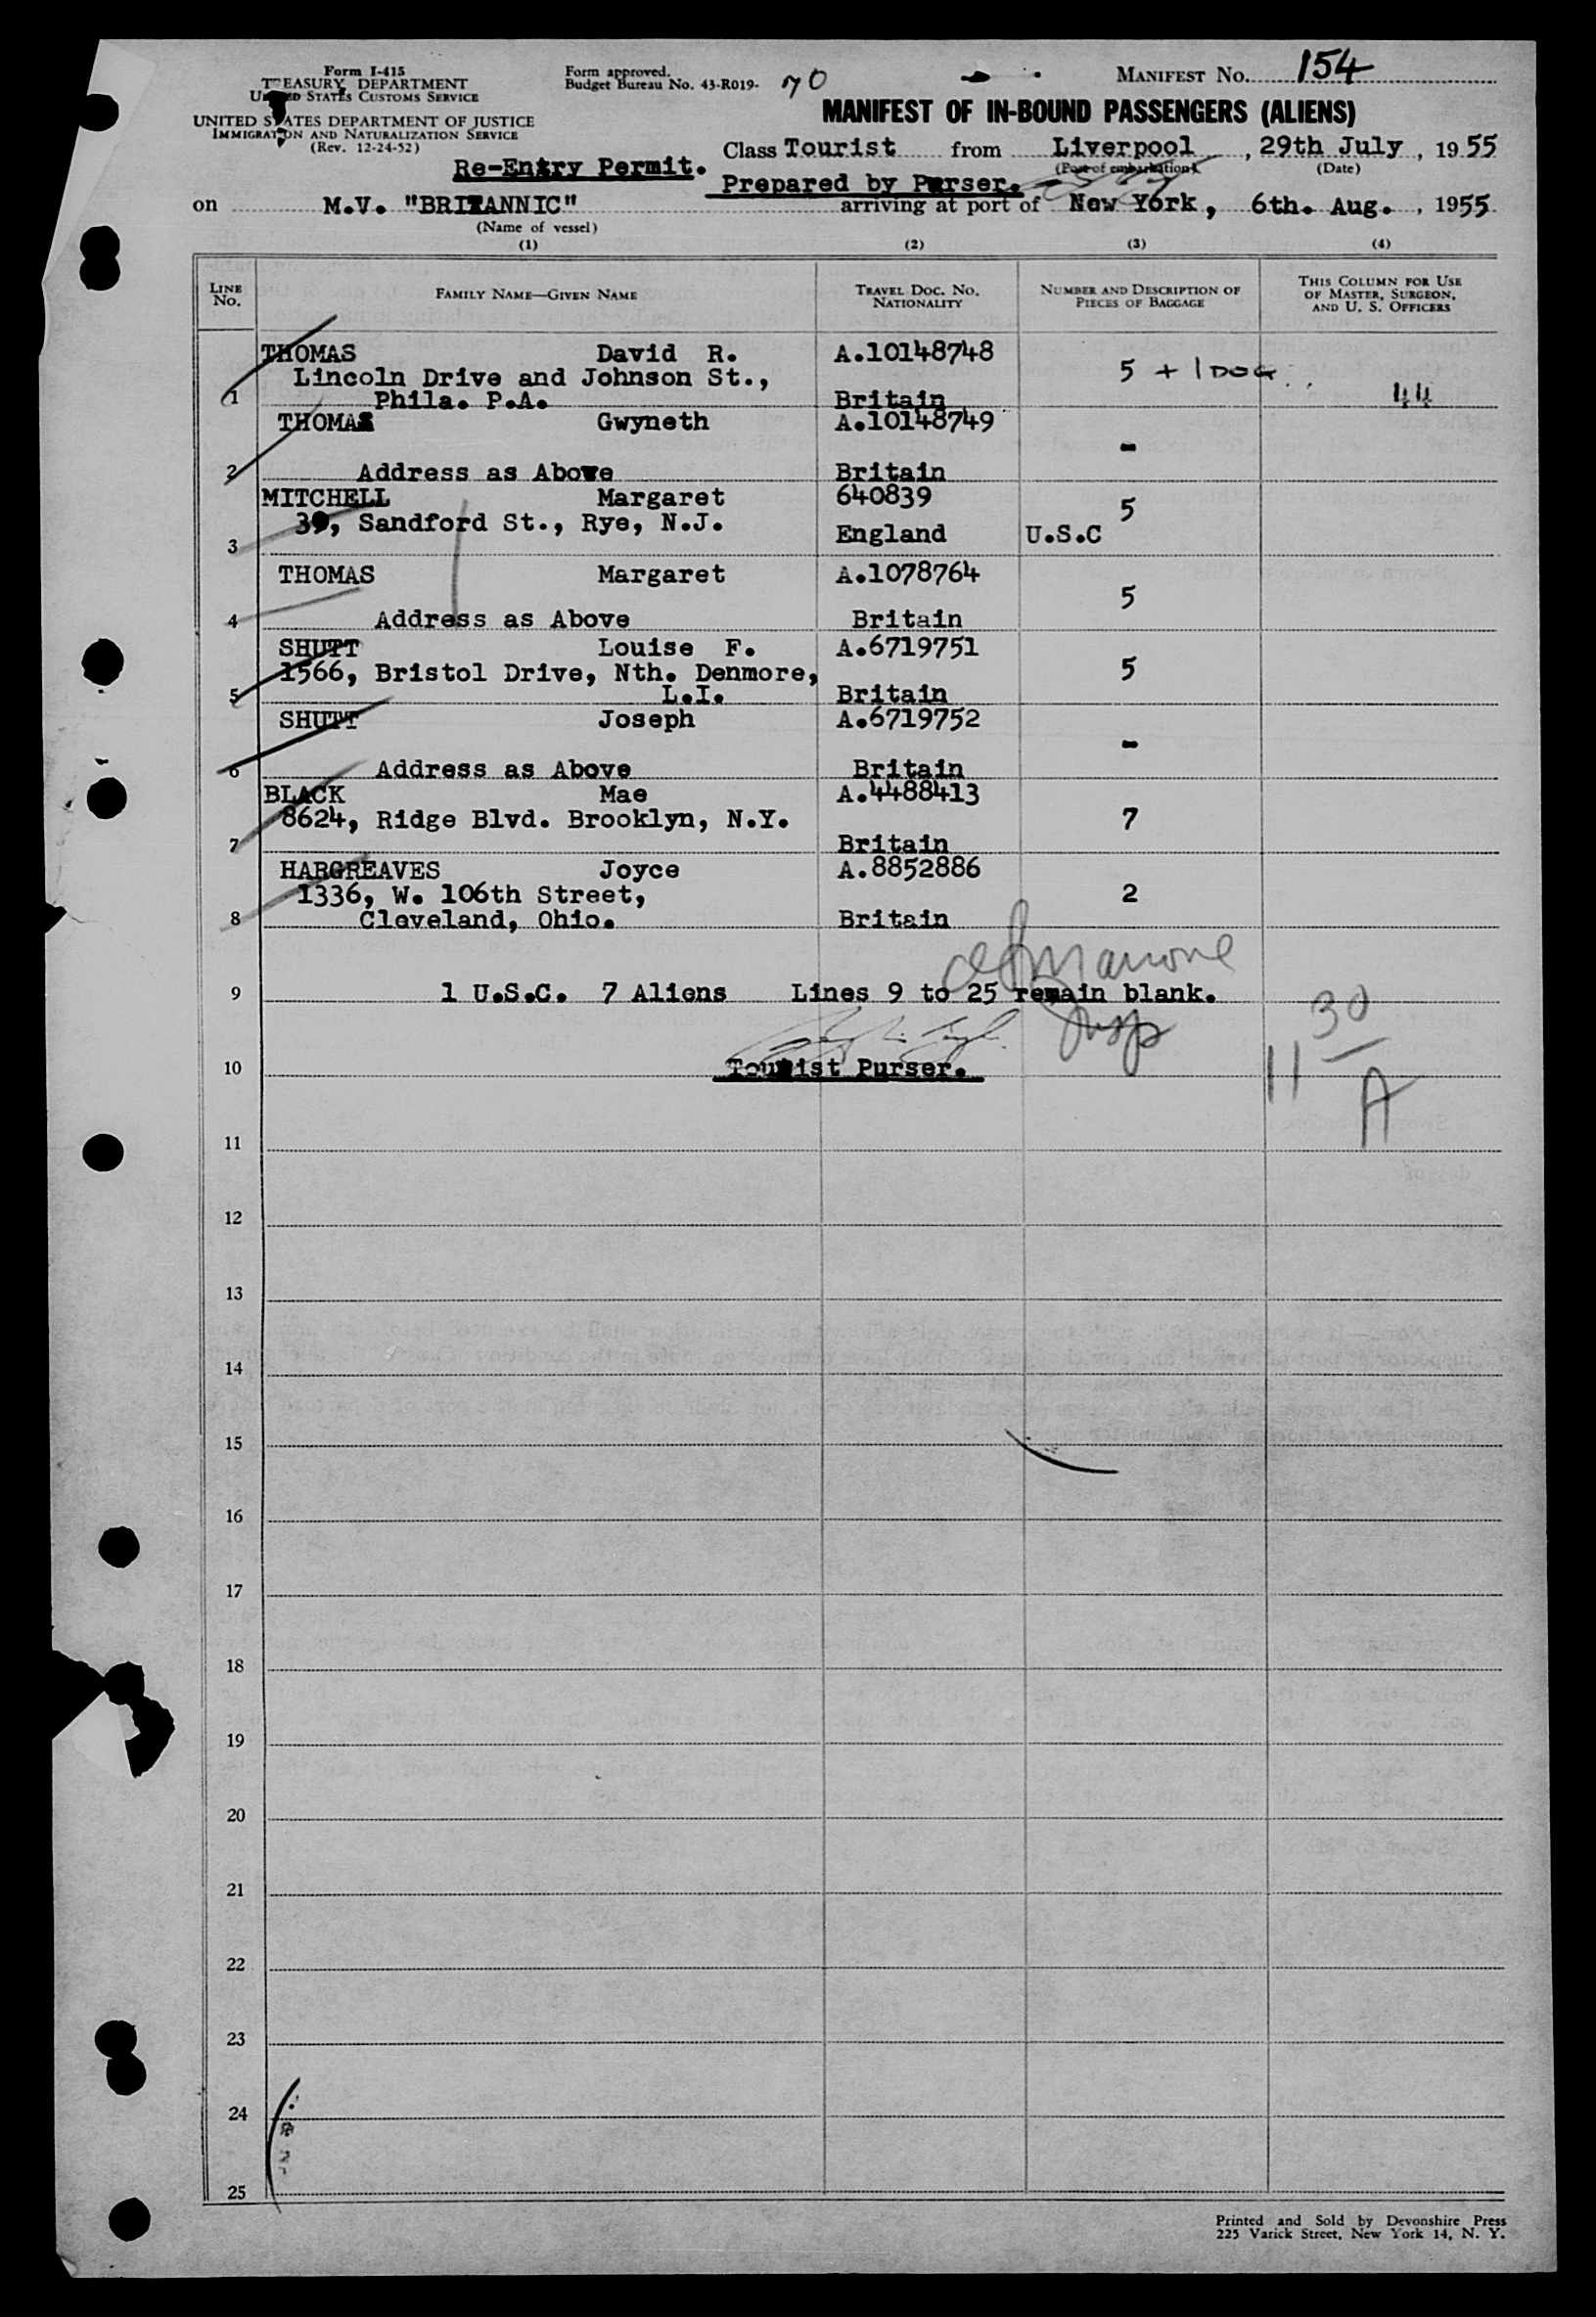 Form I-415
TREASURY DEPARTMENT
UNITED STATES CUSTOMS SERVICE
UNITED STATES DEPARTMENT OF JUSTICE
IMMIGRATION AND NATURALIZATION SERVICE
(Rev. 12-24-52)
Form approved.
Budget Bureau No. 43-R019-
70
MANIFEST No. 154
MANIFEST OF IN-BOUND PASSENGERS (ALIENS)
Re-Entry Permit.
Class Tourist from Liverpool, 29th July, 1955
(Port of embarkation) (Date)
Prepared by Purser.
on M.V. "BRITANNIC" arriving at port of New York, 6th. Aug., 1955
(Name of vessel)
(1) (2) (3) (4)
LINE No. FAMILY NAME—GIVEN NAME TRAVEL DOC. No. NATIONALITY NUMBER AND DESCRIPTION OF PIECES OF BAGGAGE THIS COLUMN FOR USE OF MASTER, SURGEON, AND U. S. OFFICERS
THOMAS David R. A.10148748
Lincoln Drive and Johnson St., 5 + 1 DOG
1 Phila. P.A. Britain 44
THOMAS Gwyneth A.10148749
-
2 Address as Above Britain
MITCHELL Margaret 640839
39, Sandford St., Rye, N.J. 5
3 England U.S.C
THOMAS Margaret A.1078764
5
4 Address as Above Britain
SHUTT Louise F. A.6719751
1566, Bristol Drive, Nth. Denmore, 5
5 L.I. Britain
SHUTT Joseph A.6719752
-
6 Address as Above Britain
BLACK Mae A.4488413
8624, Ridge Blvd. Brooklyn, N.Y. 7
7 Britain
HARGREAVES Joyce A.8852886
1336, W. 106th Street, 2
8 Cleveland, Ohio. Britain
9 1 U.S.C. 7 Aliens Lines 9 to 25 remain blank.
Insp
30
11
A
10 Tourist Purser.
11
12
13
14
15
16
17
18
19
20
21
22
23
24
25
Printed and Sold by Devonshire Press
225 Varick Street, New York 14, N. Y.